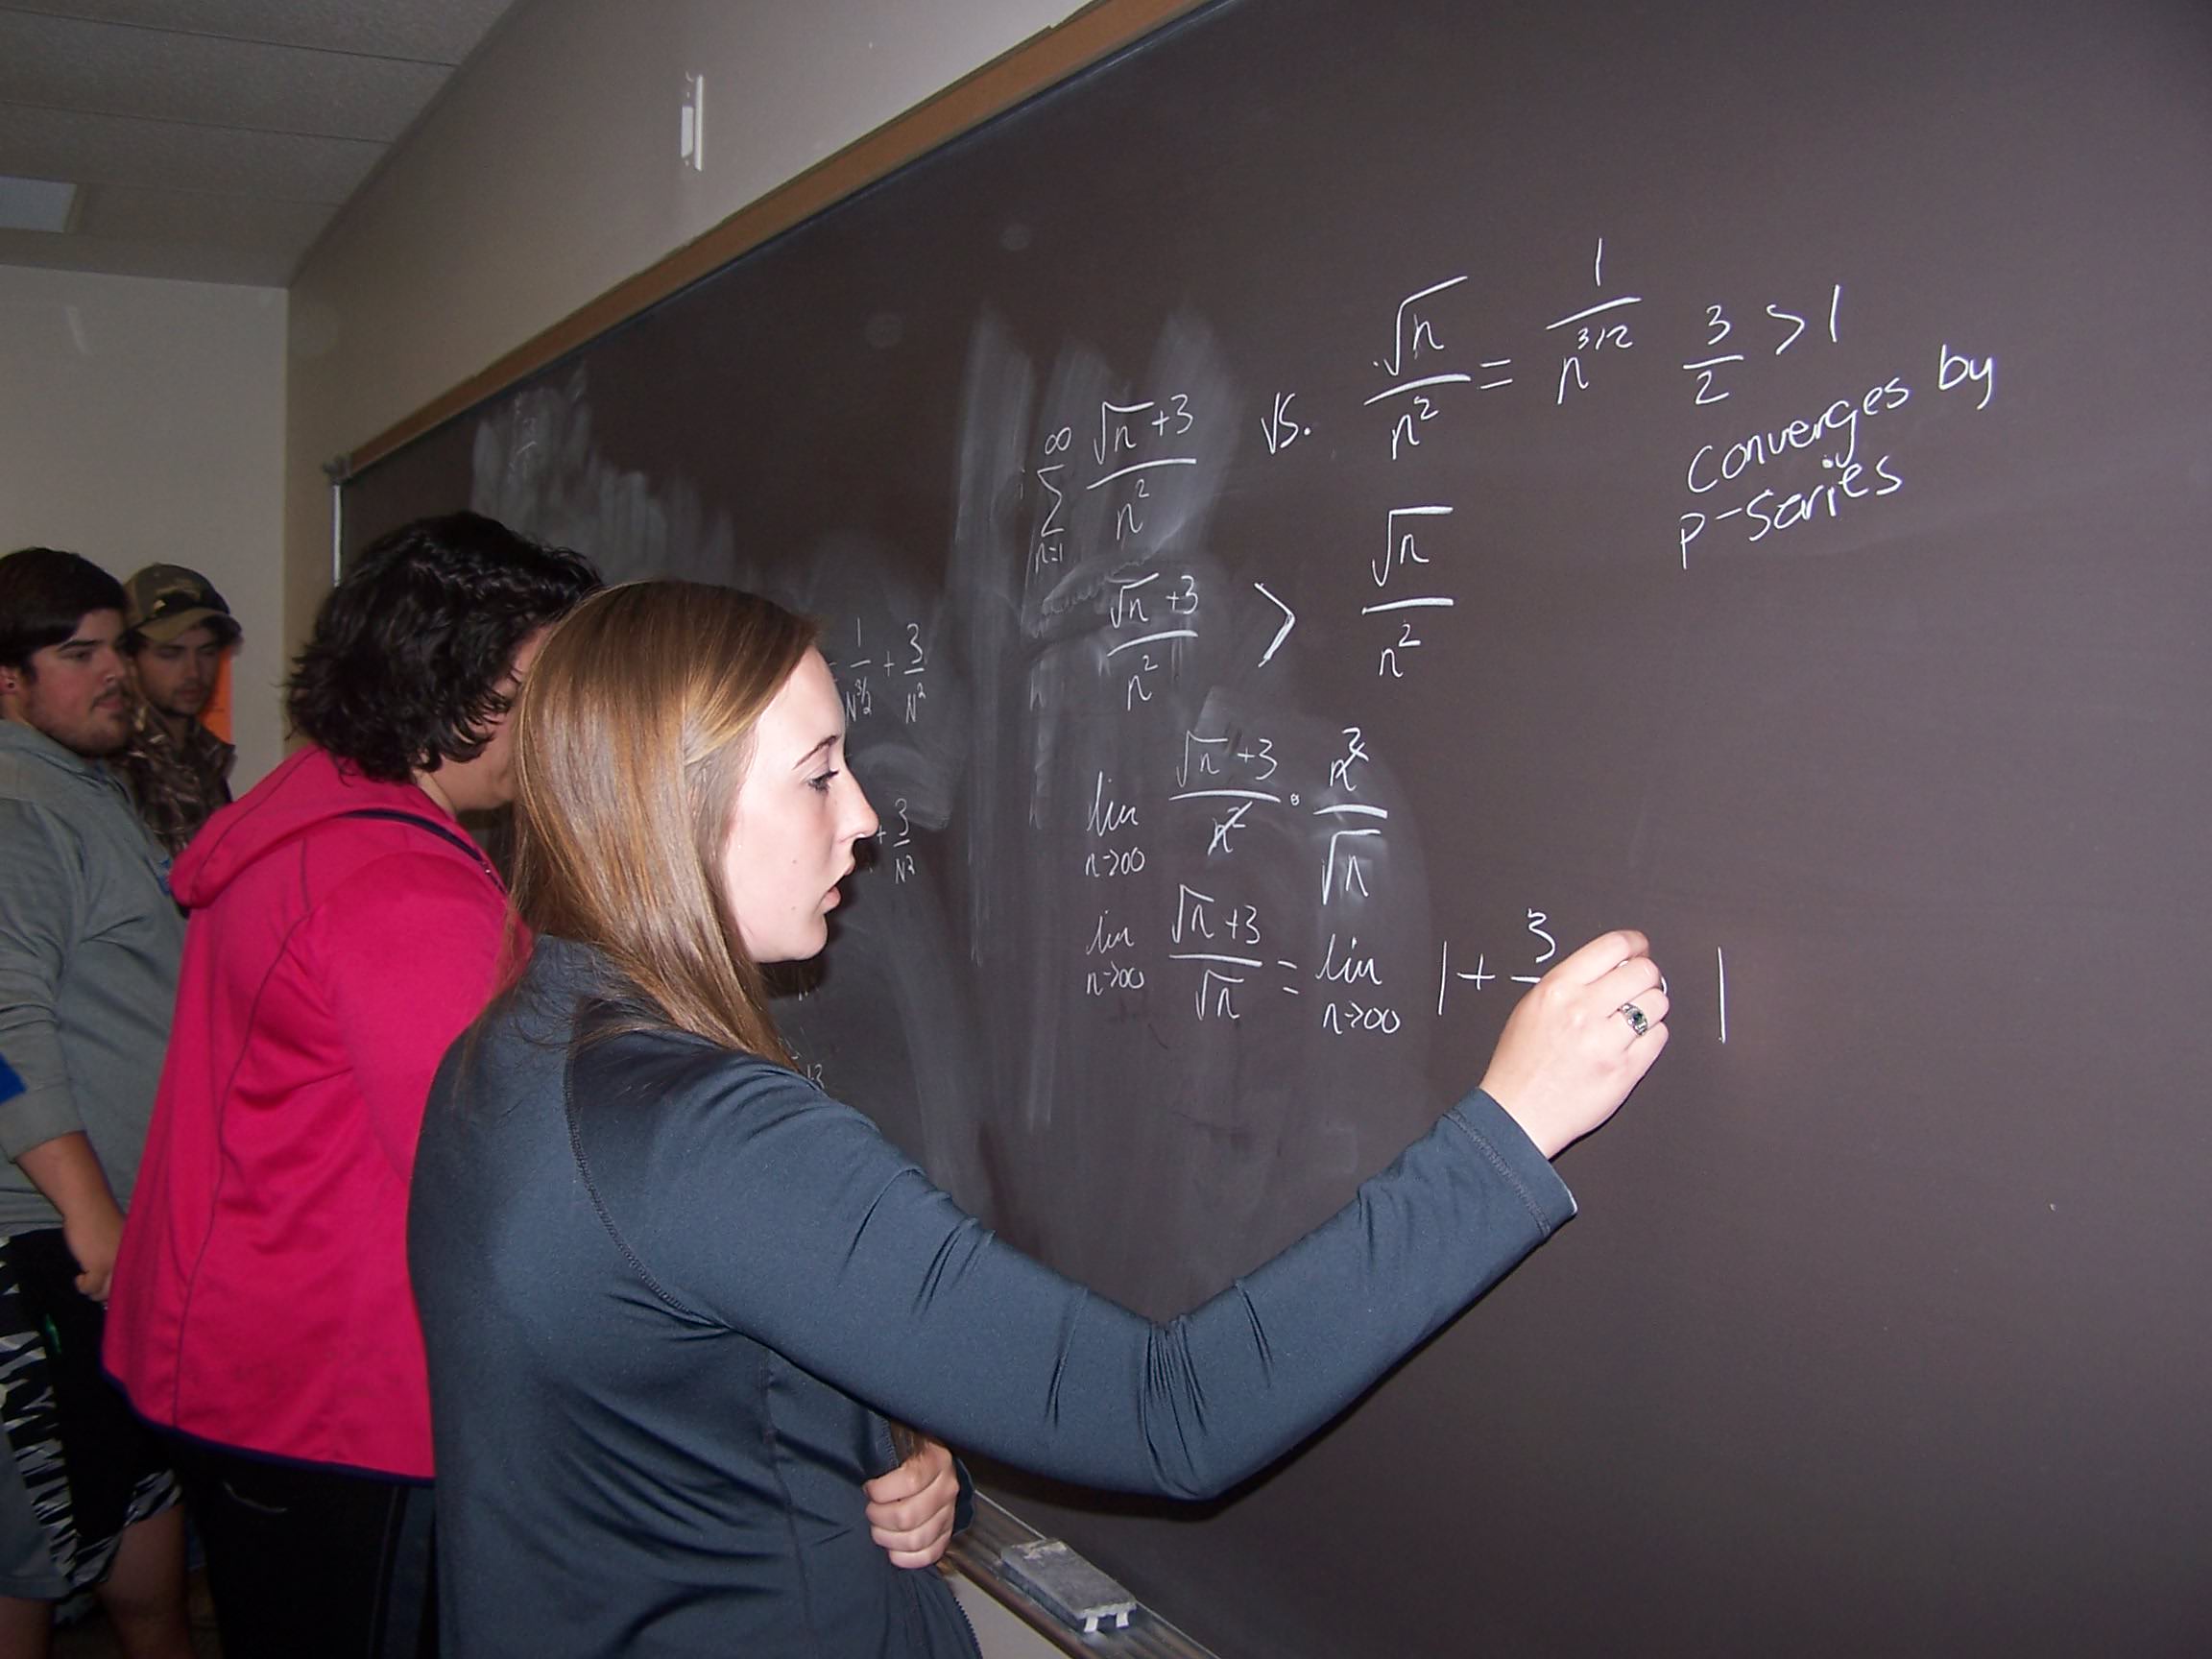 ∞ Σ n=1 (√n +3)/n² vs. √n/n² = 1/n^(3/2) 3/2 > 1
converges by
p-series
(√n +3)/n² > √n/n²
1/N^(3/2) + 3/N²
lim n→∞ (√n +3)/n² · n²/√n
+ 3/N²
lim n→∞ (√n +3)/√n = lim n→∞ 1 + 3 1